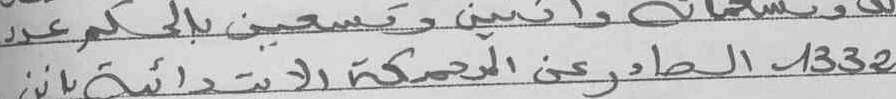 وتسعمائة واثنين وتسعين بالحكم عدد
1332 الصادر عن المحكمة الابتدائية باثن